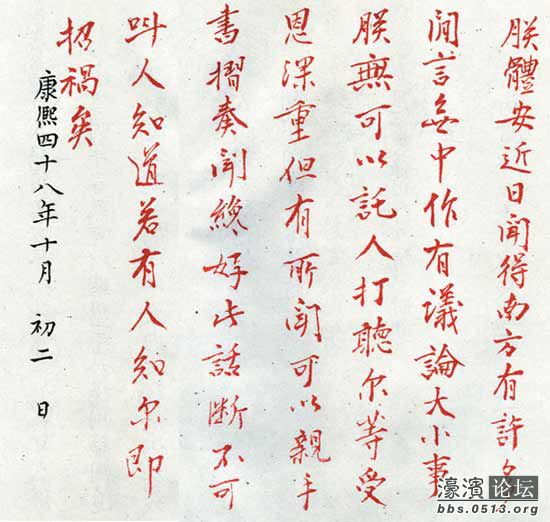 朕體安近日聞得南方有許多
閒言無中作有議論大小事
朕無可以託人打聽尔等受
恩深重但有所聞可以親手
書摺奏聞纔好此話断不可
叫人知道若有人知尔即
招禍矣
康熙四十八年十月 初二 日
濠濱 论坛
bbs.0513.org